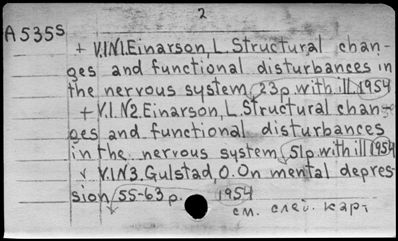 2
A535s
+ V.1N1.Einarson, L. Structural chan-
ges and functional disturbances in
the nervous system, 23p. with ill. 1954
+ V.1. N2. Einarson, L. Structural chan-
ges and functional disturbances
in the nervous system, 51p. with ill 1954
v V.1N3. Gulstad, O. On mental depres-
sion, 55-63p. 1954
см. след. карт